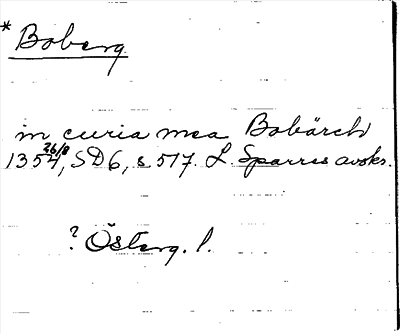 * Boberg
in curia mea Bobärch
1354 26/8, SD 6, s 517. L. Sparres avskr.
? Österg. l.